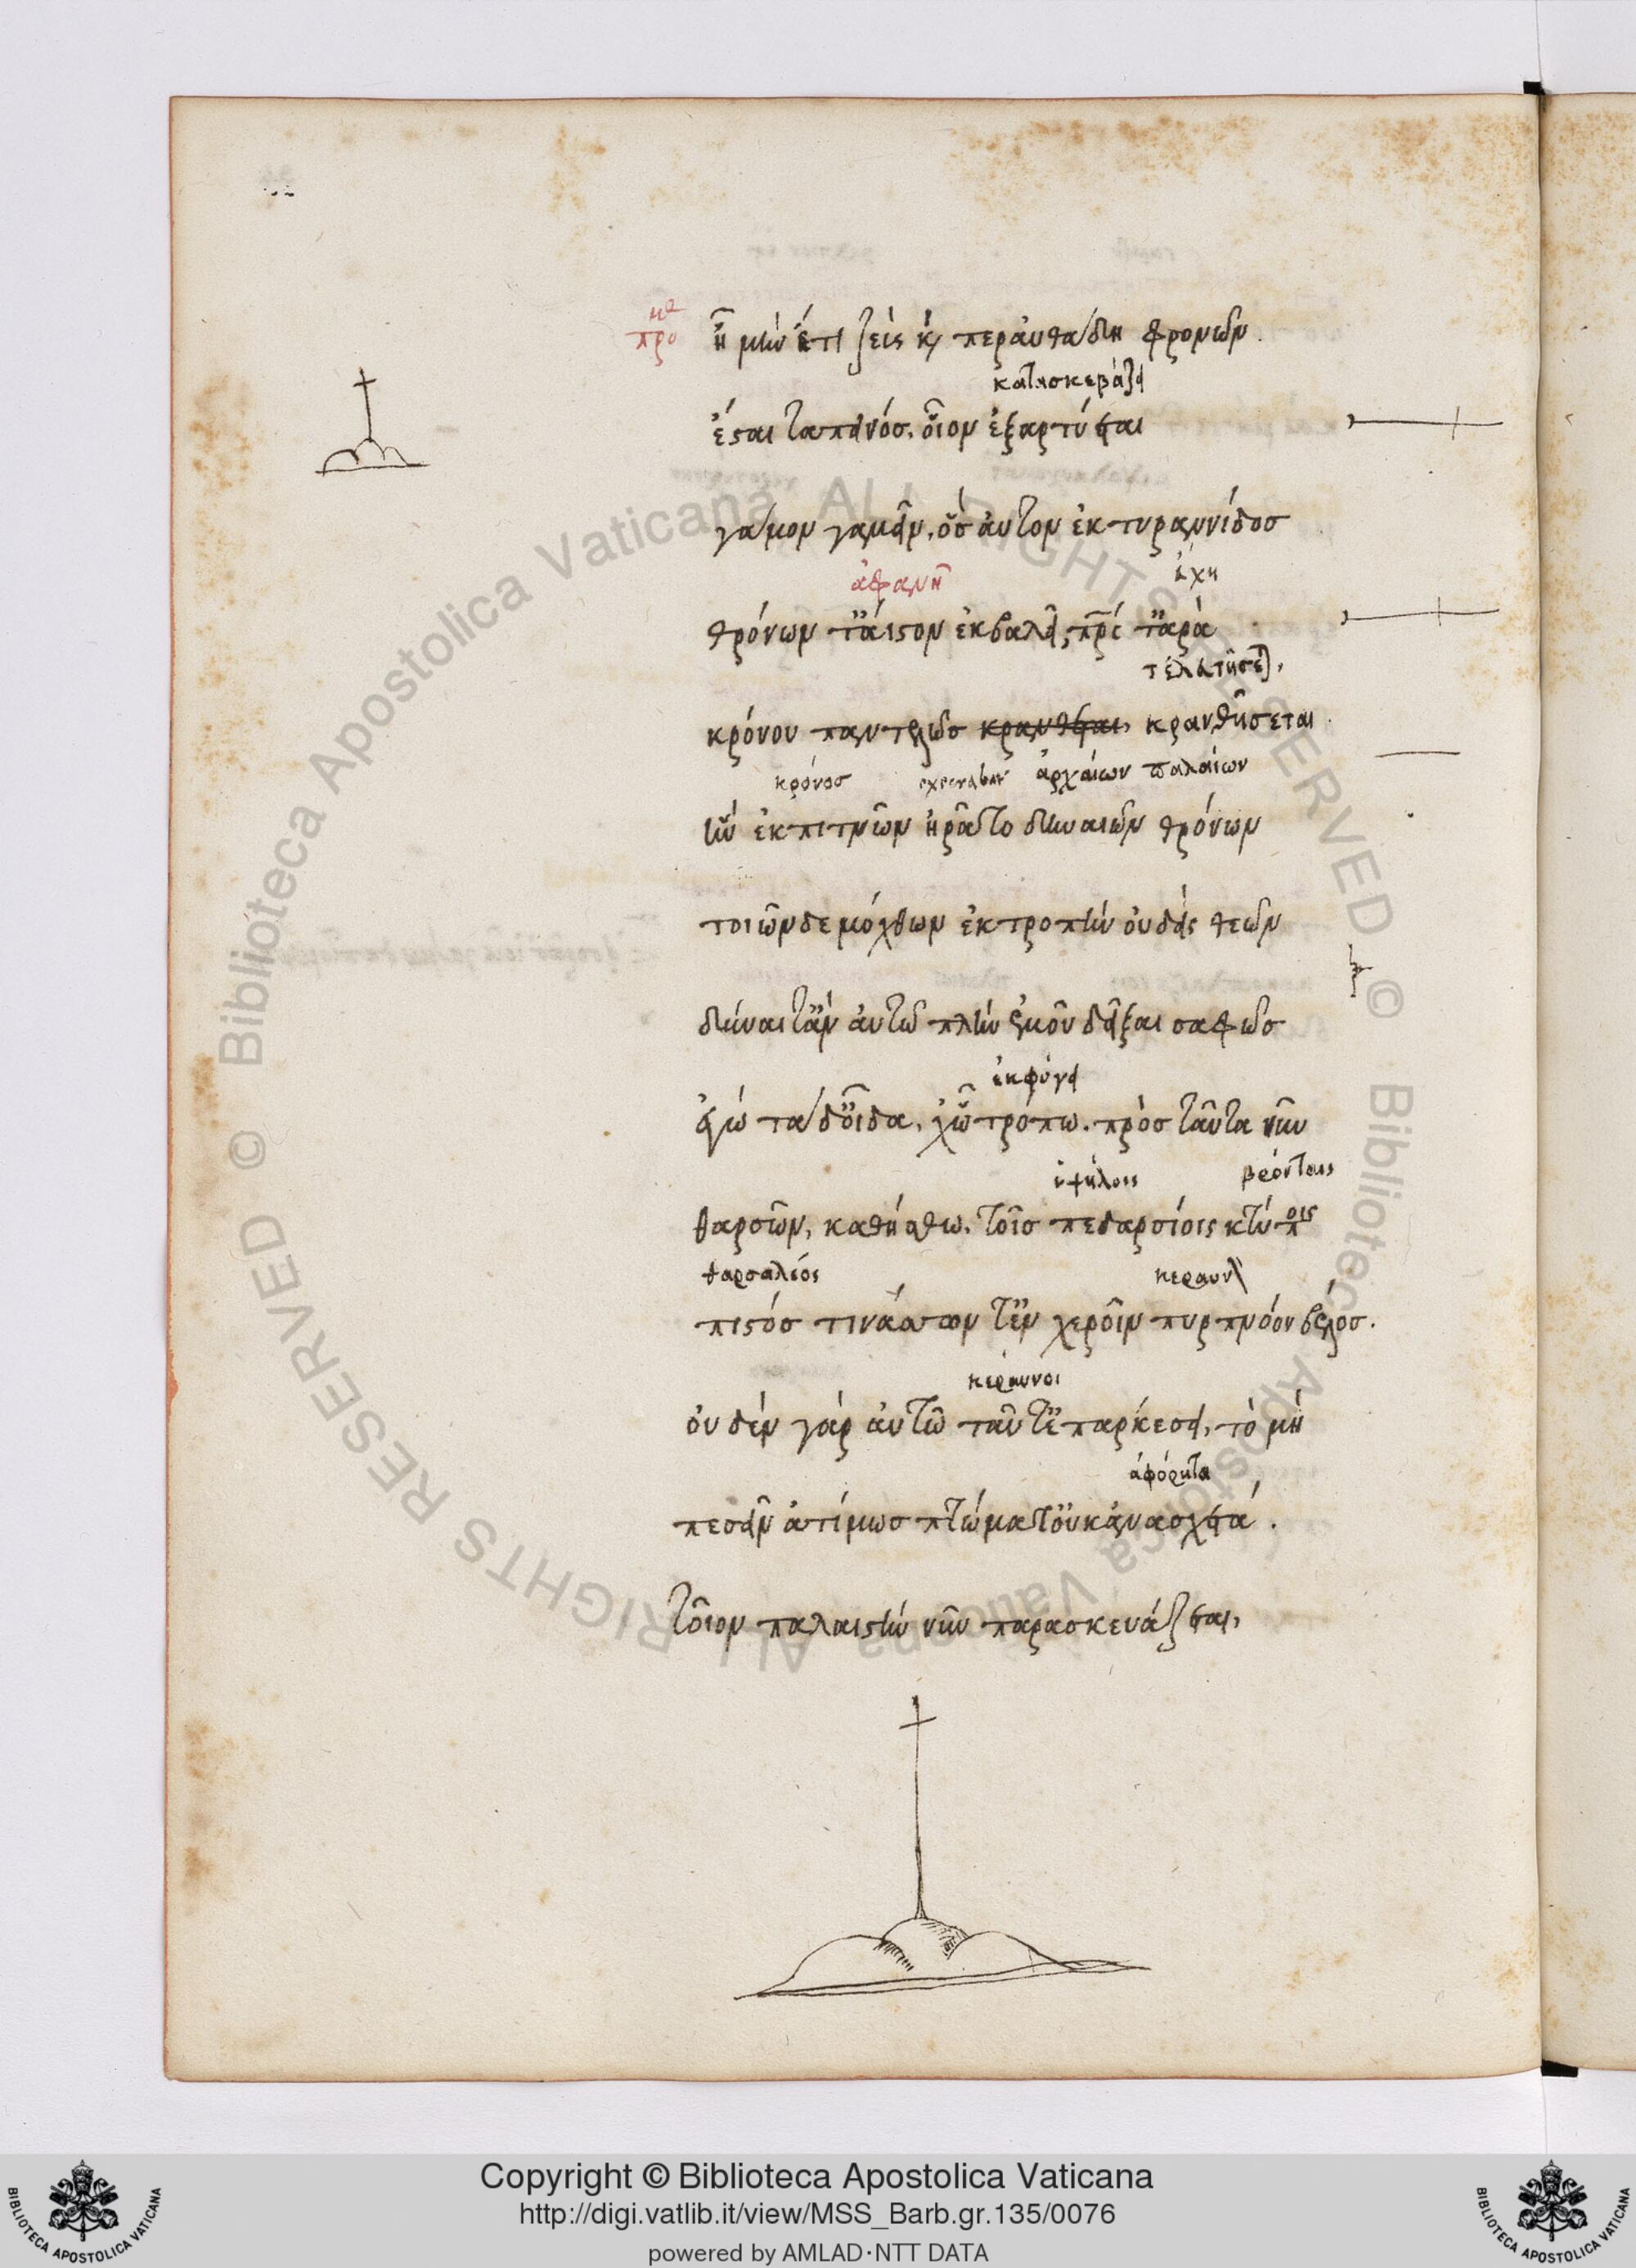 προμη ἦ μὴν ἔτι ζεὺς καὶ περ αὐθάδη φρονῶν.
κατασκευάζει
ἔσται ταπεινός. οἷον ἐξαρτύεται
γάμον γαμεῖν, ὃς αὐτὸν ἐκ τυραννίδος
ἀφανῆ
θρόνων τ' ἄϊστον ἐκβαλεῖ, πρς τ' ἀρὰ
τελεσθήσεται
κρόνου παντελῶς κρανθήσεται
κρόνος execrabat ἀρχαίων παλαίων
ἣν ἐκπιτνῶν ἠρᾶτο δηναιῶν θρόνων
τοιῶνδε μόχθων ἐκτροπὴν οὐδεὶς θεῶν
δύναιτ' ἂν αὐτῶ πλὴν ἐμοῦ δεῖξαι σαφῶς
ἐκφύγει
ἐγὼ τάδ' οἶδα, χὦ τρόπω. πρὸς ταῦτα νῦν
ὑψήλοις βρόνταις
θαρσῶν, καθήσθω, τοῖς πεδαρσίοις κτύποις
θαρσαλέος κεραυν
πιστός τινάσσων τ' ἐν χεροῖν πυρπνόον βέλος.
κεραυνοι
οὐδὲν γὰρ αὐτῶ ταῦτ' ἐπαρκέσει, τὸ μὴ
ἀφόρητα
πεσεῖν ἀτίμως πτώματ' οὐκ ἀνασχετά.
τοῖον παλαιστὴν νῦν παρασκευάζεται,
Copyright © Biblioteca Apostolica Vaticana
http://digi.vatlib.it/view/MSS_Barb.gr.135/0076
powered by AMLAD·NTT DATA
BIBLIOTECA APOSTOLICA VATICANA
BIBLIOTECA APOSTOLICA VATICANA
© Biblioteca Apostolica Vaticana ALL RIGHTS RESERVED © Biblioteca Apostolica Vaticana ALL RIGHTS RESERVED